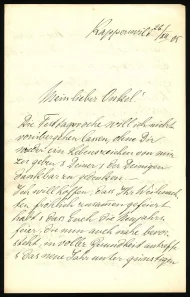 Mein lieber Onkel!
Die Festtagswoche will ich nicht
vorübergehen lassen, ohne Dir
wieder ein Lebenszeichen von mir
zu geben & Deiner, der Deinigen
dankbar zu gedenken.
Ich will hoffen, dass Ihr Weihnach-
ten fröhlich zusammen gefeiert
habt & dass Euch die Neujahrs-
feier, die nun auch nahe bevor-
steht, in voller Gesundheit antrifft
& das neue Jahr unter günstigen